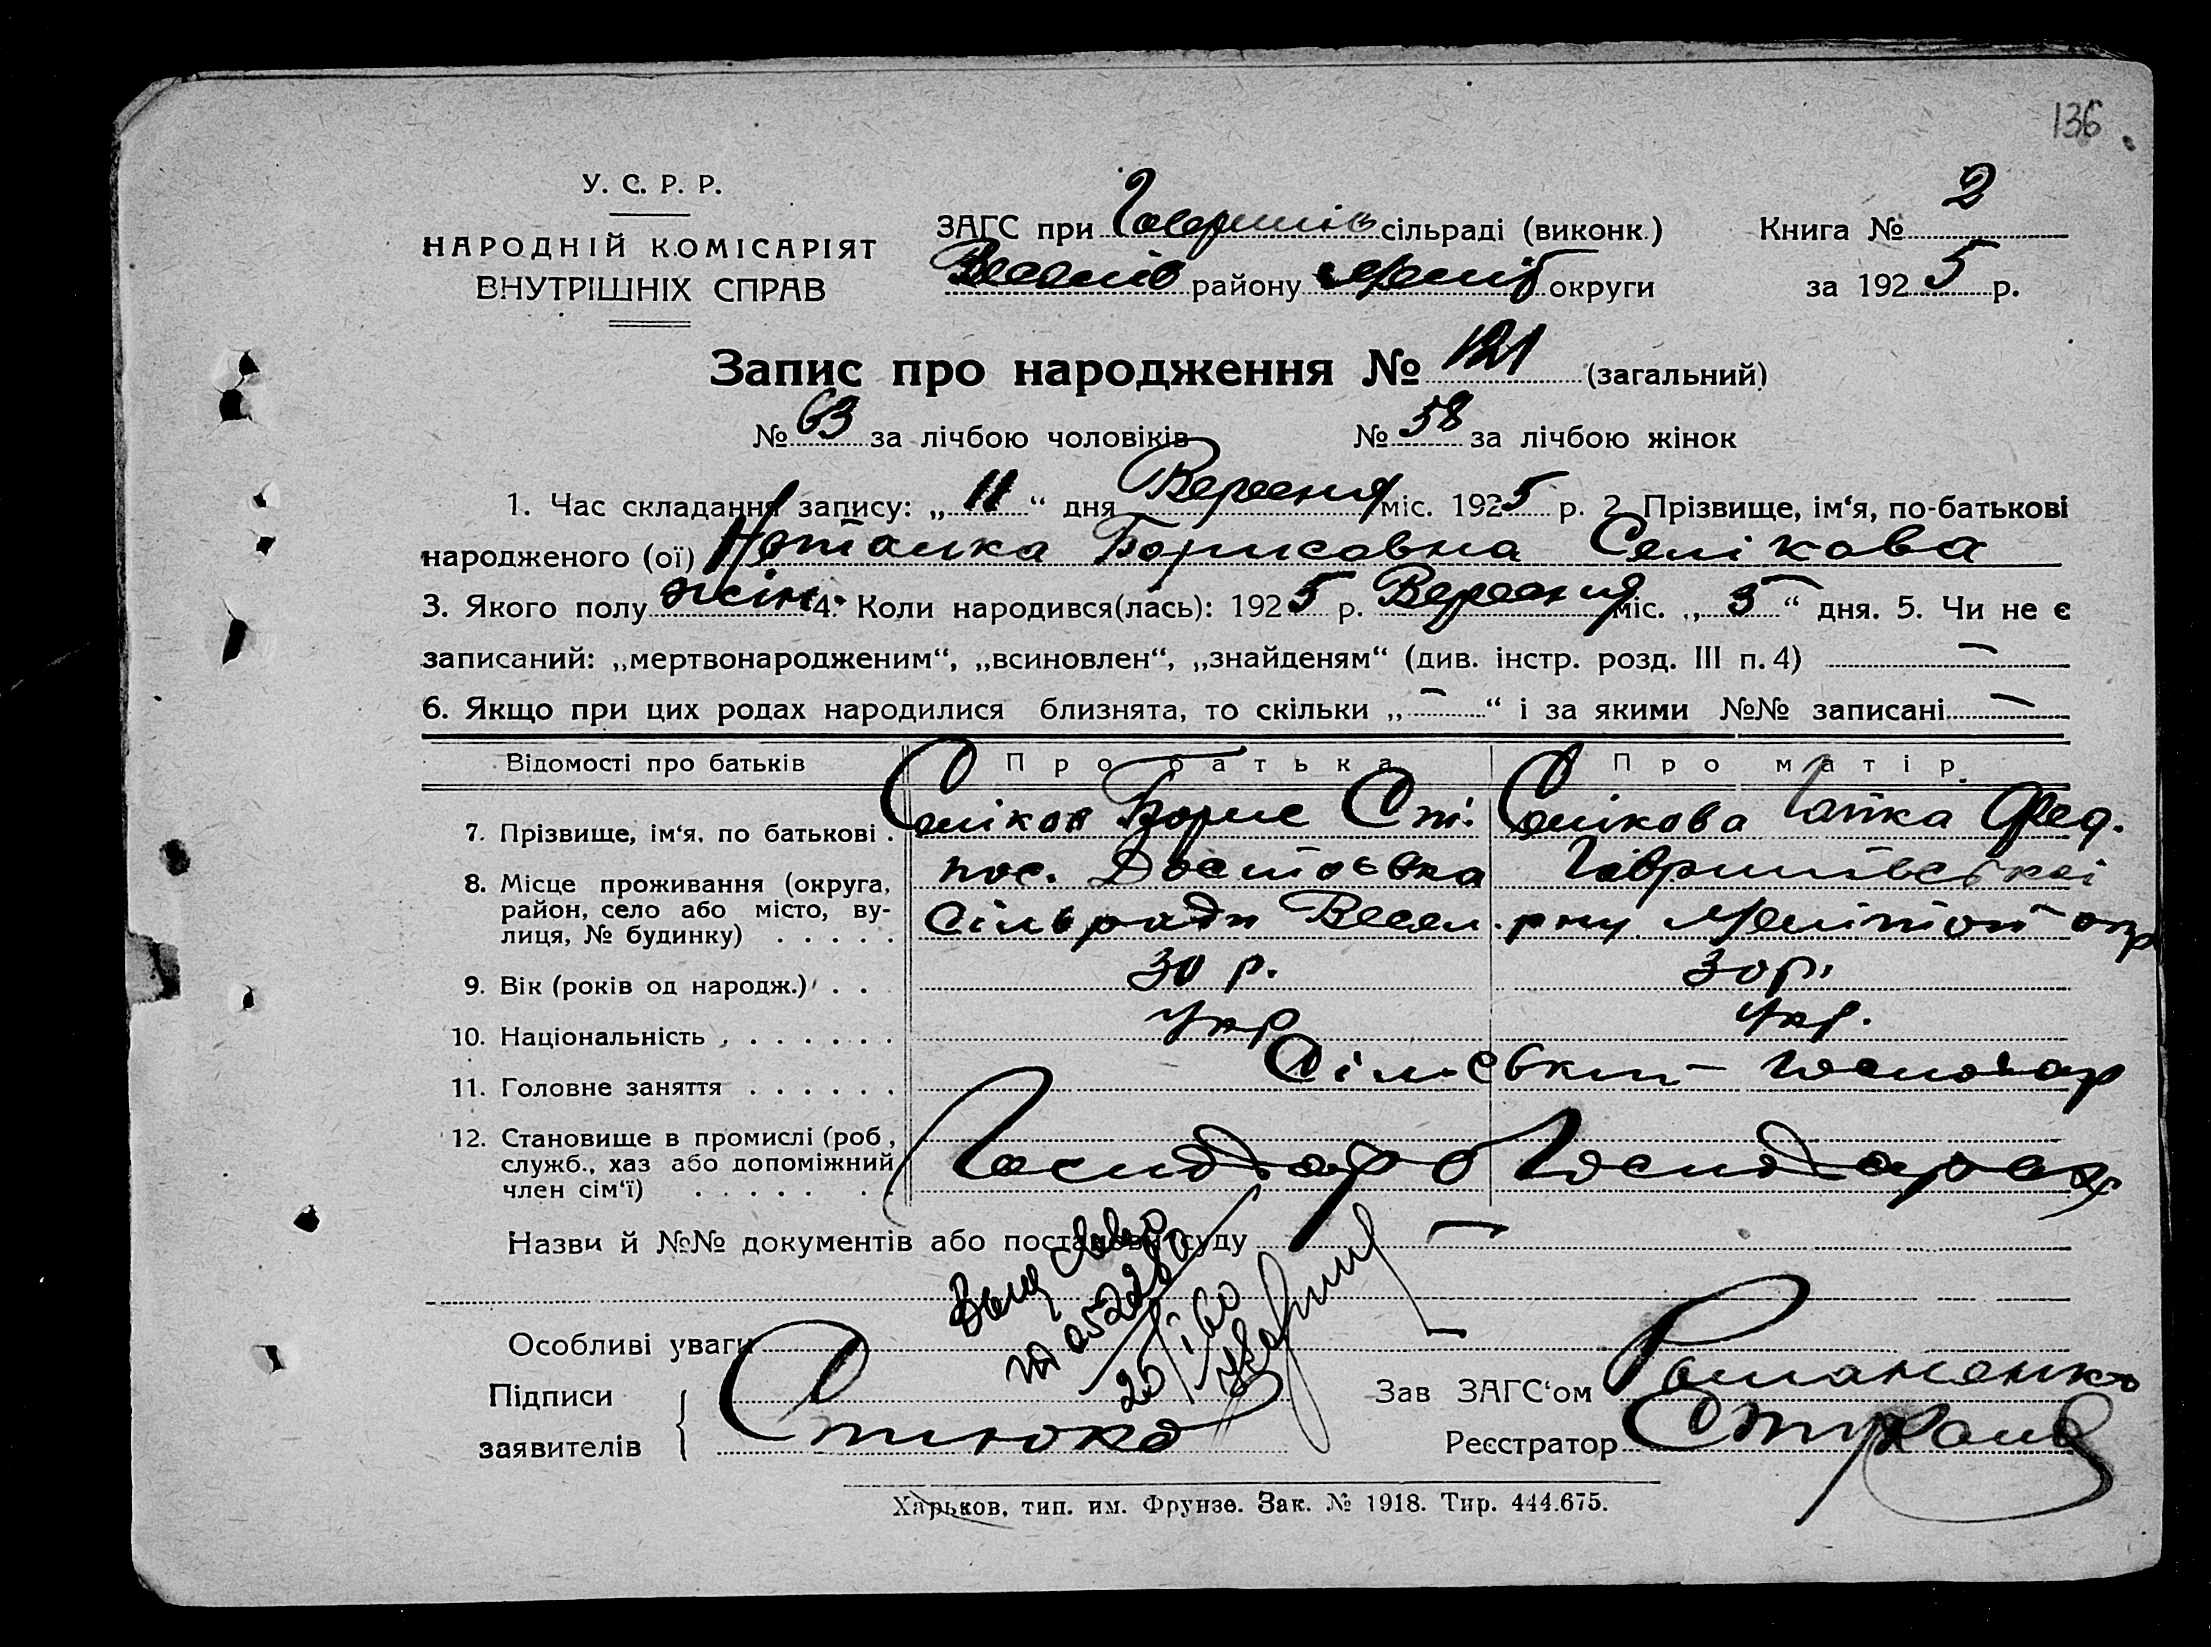 136
У. С. Р. Р.
НАРОДНІЙ КОМІСАРІЯТ
ВНУТРІШНІХ СПРАВ
ЗАГС при сільраді (виконк.)
Веселів району Меліт округи
Книга № 2
за 1925 р.
Запис про народження № 121 (загальний)
№ 63 за лічбою чоловіків № 58 за лічбою жінок
1. Час складання запису: „11“ дня Вересня міс. 1925 р. 2. Прізвище, ім‘я, по-батькові
народженого (ої) Наталка Борисовна Селікова
3. Якого полу жін. 4. Коли народився(лась): 1925 р. Вересня міс. „5“ дня. 5. Чи не є
записаний: „мертвонародженим“, „всиновлен“, „знайденям“ (див. інстр. розд. III п. 4) —
6. Якщо при цих родах народилися близнята, то скільки „—“ і за якими №№ записані —
Відомості про батьків Про батька Про матір
7. Прізвище, ім‘я, по батькові . Селіков Борис Ст. Селікова Фед.
8. Місце проживання (округа, район, село або місто, ву- лиця, № будинку) . . . . . пос. Гавришівської
сільради Весел. р-ну Мелітоп окр
9. Вік (років од народж.) . . 30 р. 30 р.
10. Національність . . . . . . . Укр Укр.
11. Головне заняття . . . . . . Сільський - господар
12. Становище в промислі (роб, служб., хаз або допоміжний член сім‘ї) . . . . . . . Господар Господарах
Назви й №№ документів або постанови суду —
Особливі уваги —
Підписи
заявителів
Зав ЗАГС‘ом Романенко
Реєстратор
Харьков, тип. им. Фрунзе. Зак. № 1918. Тир. 444.675.